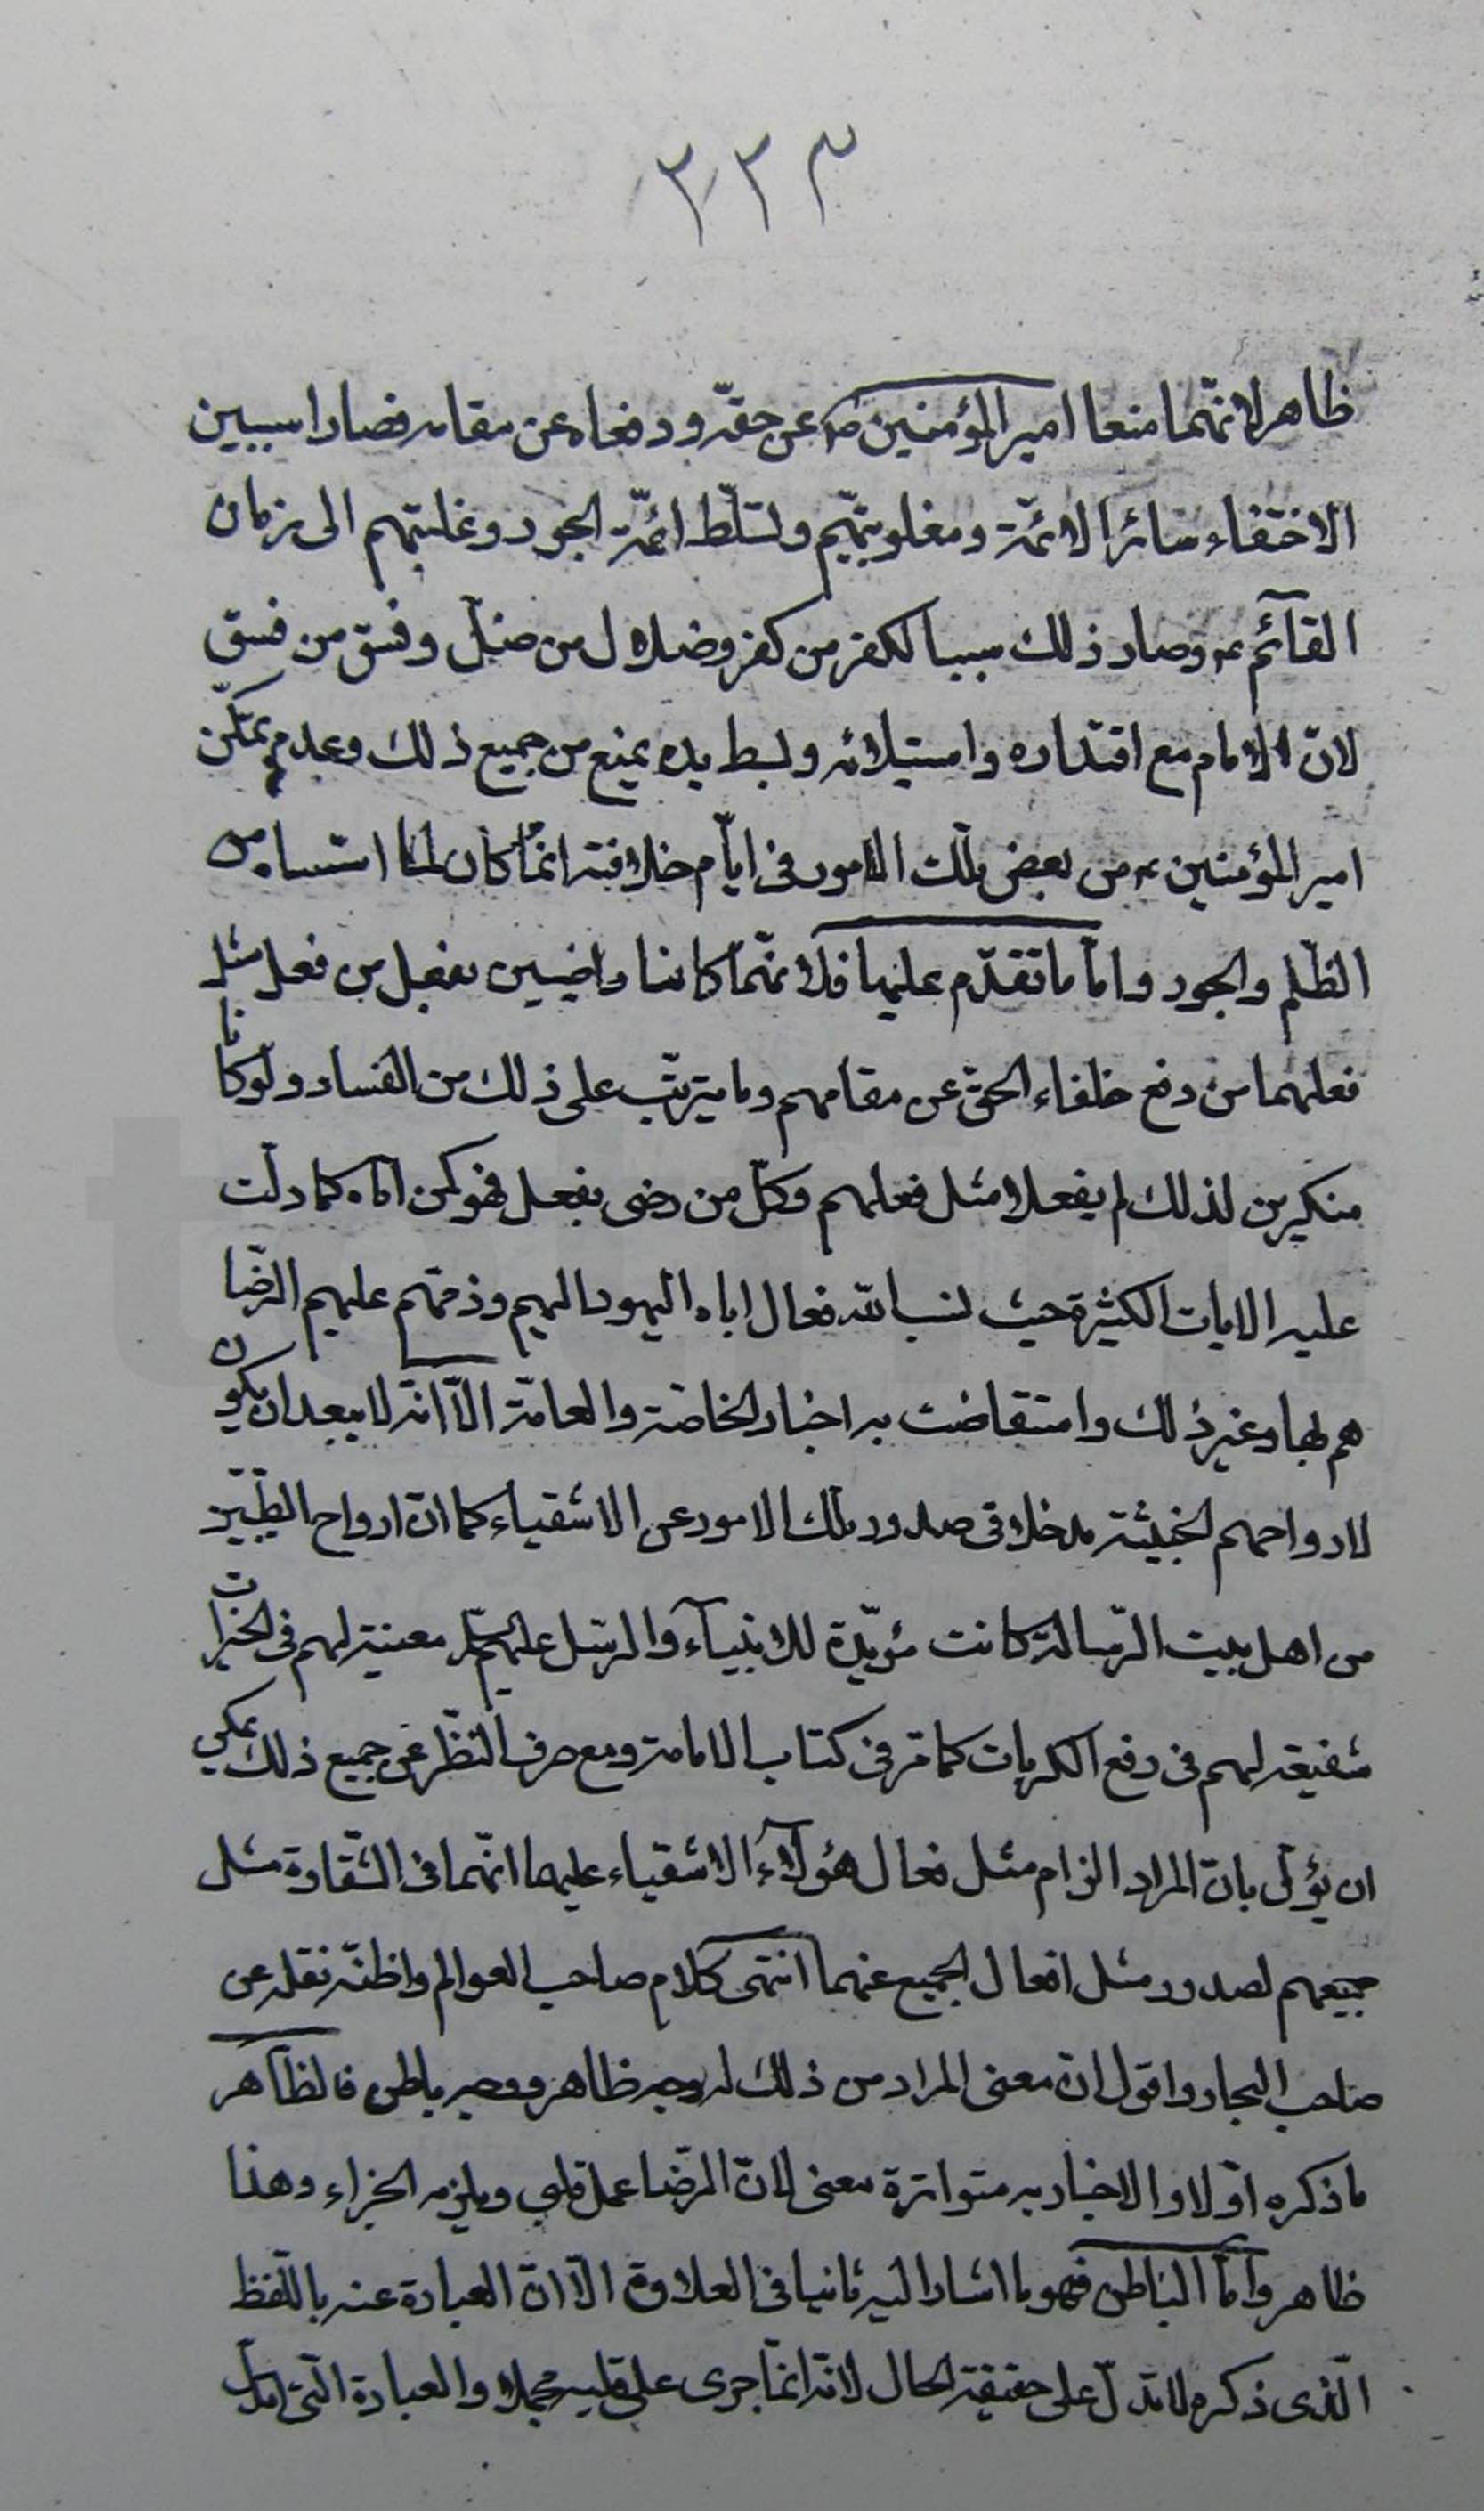 ٣٣٣
ظاهر لانّهما منعا امير المؤمنين ص عن حقّه ودفعاه عن مقامه فصارا سببين
لاختفاء سائر الائمّة ومغلوبيّتهم ولتسلّط ائمّة الجور وغلبتهم الى زمان
القآئم ع وصار ذلك سببا لكفر من كفر وضلال من ضلّ وفسق من فسق
لانّ الامام مع اقتداره واستيلائه وبسط يده يمنع من جميع ذلك وعدم تمكّن
امير المؤمنين ع من بعض تلك الامور فى ايّام خلافته انّما كان لما اسّساه من
الظّلم والجور وامّا ما تقدّم عليهما فلانّهما كانا راضيين بفعل من فعل مثل
فعلهما من دفع خلفاء الحقّ عن مقامهم وما يترتّب على ذلك من الفساد ولو كانا
منكرين لذلك لم يفعلا مثل فعلهم وكلّ من رضى بفعل فهو كمن اتاه كما دلّت
عليه الايات الكثيرة حيث نسب الله فعال اباء اليهود اليهم وذمّهم عليهم الرّضا
هم بها وغير ذلك واستفاضت به اخبار الخاصّة والعامّة الّا انّه لا يبعد ان يكون
لارواحهم الخبيثة مدخلا فى صدور تلك الامور عن الاشقياء كما انّ ارواح الطّيّبين
من اهل بيت الرّسالة كانت مؤيّدة للانبيآء والرّسل عليهم السّلام معينة لهم فى الخيرات
شفيعة لهم فى دفع الكربات كما مرّ فى كتاب الامامة ومع صرف النّظر عن جميع ذلك يمكن
ان يؤوّل بانّ المراد الزام مثل فعال هؤلآء الاشقياء عليهما انّهما فى الشّقاوة مثل
جميعهم لصدور مثل افعال الجميع عنهما انتهى كلام صاحب العوالم واظنّه نقله عن
صاحب البحار واقول انّ معنى المراد من ذلك له وجه ظاهر ووجه باطن فالظّاهر
ما ذكره اوّلا والاخبار به متواترة معنى لانّ الرّضا عمل قلبى ويلزمه الجزاء وهذا
ظاهر وامّا الباطن فهو ما اشار اليه ثانيا فى العلاوة الّا انّ العبارة عنه باللّفظ
الّذى ذكره لا تدلّ على حقيقة الحال لانّه انّما جرى على قلبه مجملا والعبارة الّتى تدلّ